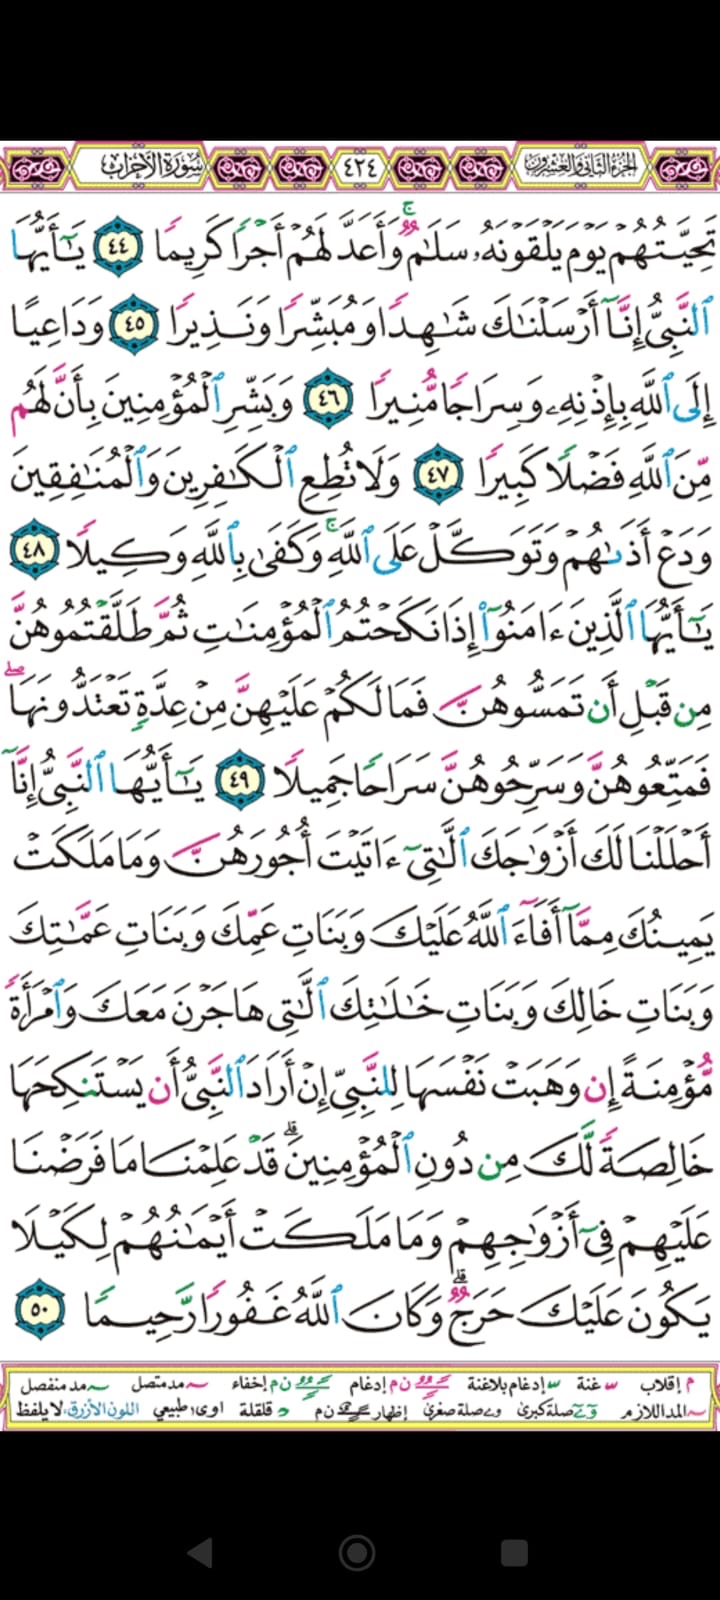 الجزء الثاني والعشرون ٤٢٤ سورة الأحزاب
تَحِيَّتُهُمْ يَوْمَ يَلْقَوْنَهُۥ سَلَٰمٌۚ وَأَعَدَّ لَهُمْ أَجْرًا كَرِيمًا ٤٤ يَٰٓأَيُّهَا
ٱلنَّبِىُّ إِنَّآ أَرْسَلْنَٰكَ شَٰهِدًا وَمُبَشِّرًا وَنَذِيرًا ٤٥ وَدَاعِيًا
إِلَى ٱللَّهِ بِإِذْنِهِۦ وَسِرَاجًا مُّنِيرًا ٤٦ وَبَشِّرِ ٱلْمُؤْمِنِينَ بِأَنَّ لَهُم
مِّنَ ٱللَّهِ فَضْلًا كَبِيرًا ٤٧ وَلَا تُطِعِ ٱلْكَٰفِرِينَ وَٱلْمُنَٰفِقِينَ
وَدَعْ أَذَىٰهُمْ وَتَوَكَّلْ عَلَى ٱللَّهِۚ وَكَفَىٰ بِٱللَّهِ وَكِيلًا ٤٨
يَٰٓأَيُّهَا ٱلَّذِينَ ءَامَنُوٓا۟ إِذَا نَكَحْتُمُ ٱلْمُؤْمِنَٰتِ ثُمَّ طَلَّقْتُمُوهُنَّ
مِن قَبْلِ أَن تَمَسُّوهُنَّ فَمَا لَكُمْ عَلَيْهِنَّ مِنْ عِدَّةٍ تَعْتَدُّونَهَاۖ
فَمَتِّعُوهُنَّ وَسَرِّحُوهُنَّ سَرَاحًا جَمِيلًا ٤٩ يَٰٓأَيُّهَا ٱلنَّبِىُّ إِنَّآ
أَحْلَلْنَا لَكَ أَزْوَٰجَكَ ٱلَّٰتِىٓ ءَاتَيْتَ أُجُورَهُنَّ وَمَا مَلَكَتْ
يَمِينُكَ مِمَّآ أَفَآءَ ٱللَّهُ عَلَيْكَ وَبَنَاتِ عَمِّكَ وَبَنَاتِ عَمَّٰتِكَ
وَبَنَاتِ خَالِكَ وَبَنَاتِ خَٰلَٰتِكَ ٱلَّٰتِى هَاجَرْنَ مَعَكَ وَٱمْرَأَةً
مُّؤْمِنَةً إِن وَهَبَتْ نَفْسَهَا لِلنَّبِىِّ إِنْ أَرَادَ ٱلنَّبِىُّ أَن يَسْتَنكِحَهَا
خَالِصَةً لَّكَ مِن دُونِ ٱلْمُؤْمِنِينَۗ قَدْ عَلِمْنَا مَا فَرَضْنَا
عَلَيْهِمْ فِىٓ أَزْوَٰجِهِمْ وَمَا مَلَكَتْ أَيْمَٰنُهُمْ لِكَيْلَا
يَكُونَ عَلَيْكَ حَرَجٌۗ وَكَانَ ٱللَّهُ غَفُورًا رَّحِيمًا ٥٠
م إقلاب غنة إدغام بلاغنة ن م إدغام ن م إخفاء مد متصل مد منفصل
المد اللازم صلة كبرى وے صلة صغرى إظهار ن م قلقلة اوى طبيعي اللون الأزرق: لا يلفظ